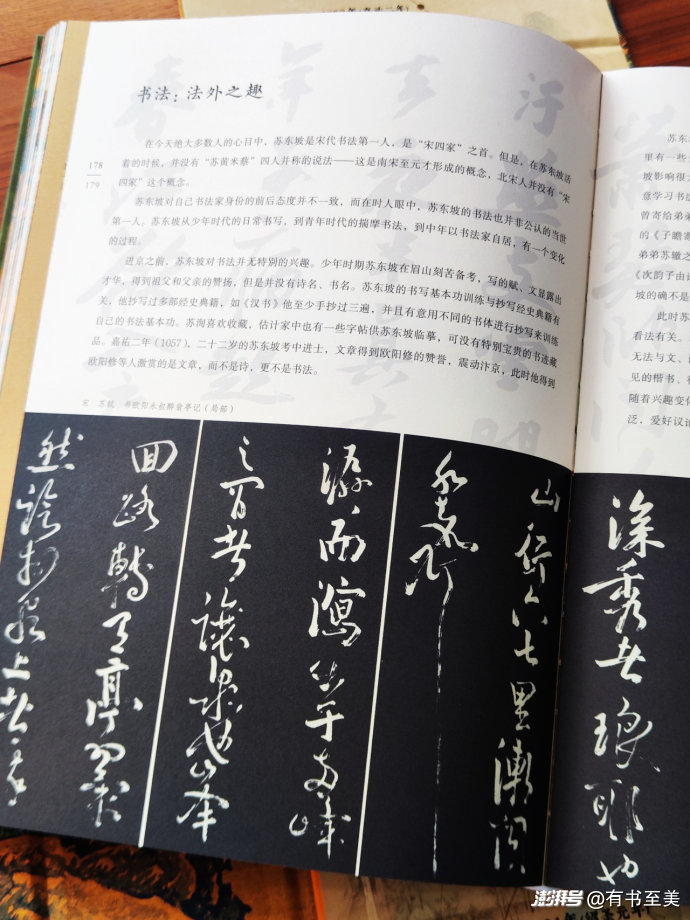 书法：法外之趣
178
179
在今天绝大多数人的心目中，苏东坡是宋代书法第一人，是“宋四家”之首。但是，在苏东坡活
着的时候，并没有“苏黄米蔡”四人并称的说法——这是南宋至元才形成的概念，北宋人并没有“宋
四家”这个概念。
苏东坡对自己书法家身份的前后态度并不一致，而在时人眼中，苏东坡的书法也并非公认的当世
第一人。苏东坡从少年时代的日常书写，到青年时代的揣摩书法，到中年以书法家自居，有一个变化
的过程。
进京之前，苏东坡对书法并无特别的兴趣。少年时期苏东坡在眉山刻苦备考，写的赋、文显露出
才华，得到祖父和父亲的赞扬，但是并没有诗名、书名。苏东坡的书写基本功训练与抄写经史典籍有
关，他抄写过多部经史典籍，如《汉书》他至少手抄过三遍，并且有意用不同的书体进行抄写来训练
自己的书法基本功。苏洵喜欢收藏，估计家中也有一些字帖供苏东坡临摹，可没有特别宝贵的书迹藏
品。嘉祐二年（1057），二十二岁的苏东坡考中进士，文章得到欧阳修的赞誉，震动汴京，此时他得到
欧阳修等人激赏的是文章，而不是诗，更不是书法。
宋 苏轼 书欧阳永叔醉翁亭记（局部）
深秀者瑯耶也
山行六七里漸聞
水聲
潺而瀉出于兩峰
之間者讓泉也峰
回路轉有亭翼
然臨於泉上者
里有一些
坡影响很大
意学习书法
曾寄给弟弟
的《子瞻寄
弟弟苏辙之
《次韵子由
坡的确不是
此时苏
看法有关。
无法与文、
见的楷书、
随着兴趣变化
泛，爱好议论
澎湃号@有书至美